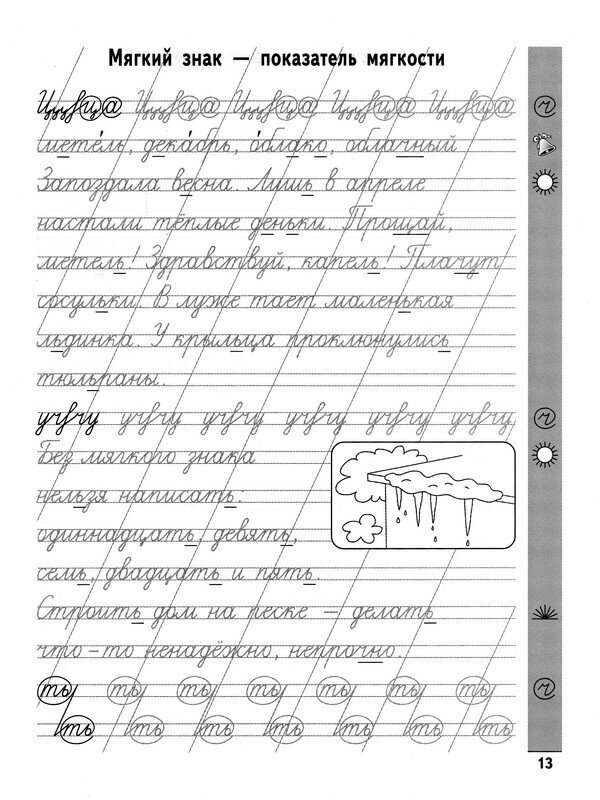 Мягкий знак — показатель мягкости
метель, декабрь, облако, облачный
Запоздала весна. Лишь в апреле
настали тёплые деньки. Прощай,
метель! Здравствуй, капель! Плачут
сосульки. В луже тает маленькая
льдинка. У крыльца проклюнулись
тюльпаны.
Без мягкого знака
нельзя написать:
одиннадцать, девять,
семь, двадцать и пять.
Строить дом на песке — делать
что-то ненадёжно, непрочно.
ть ть ть ть ть ть ть
ть ть ть ть ть ть ть
13